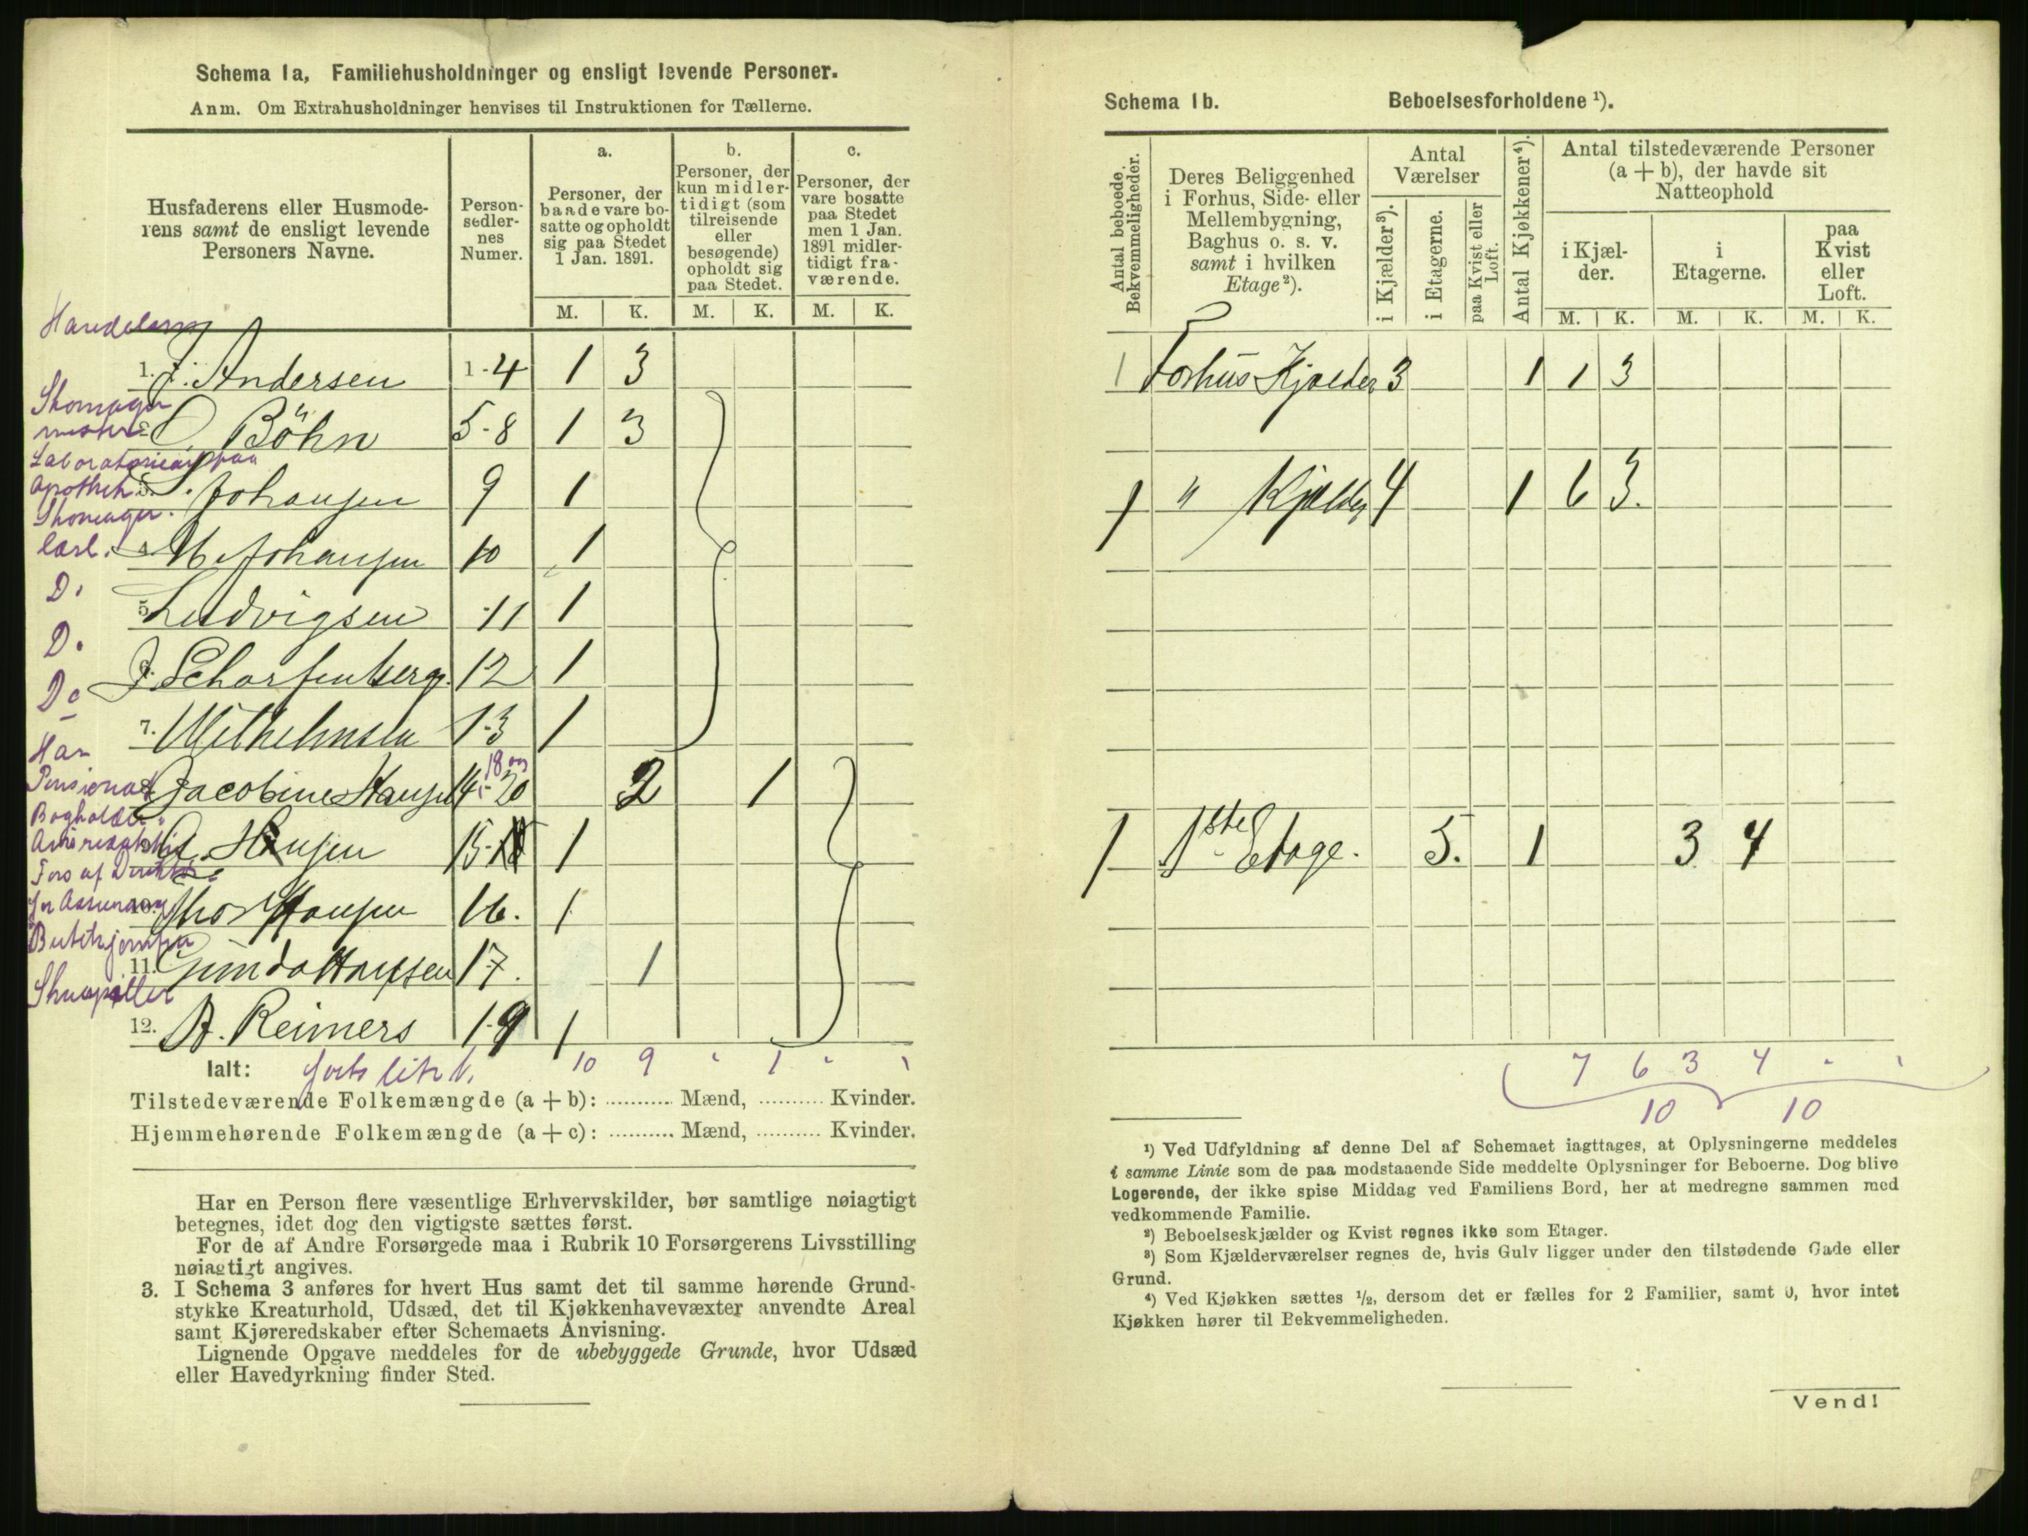 Schema 1a, Familiehusholdninger og ensligt levende Personer.
Anm. Om Extrahusholdninger henvises til Instruktionen for Tællerne.
Husfaderens eller Husmode-
rens samt de ensligt levende
Personers Navne.
Person-
sedler-
nes
Numer.
a.
Personer, der
baade vare bo-
satte og opholdt
sig paa Stedet
1 Jan. 1891.
b.
Personer, der
kun midler-
tidigt (som
tilreisende
eller
besøgende)
opholdt sig
paa Stedet.
c.
Personer, der
vare bosatte
paa Stedet
men 1 Jan.
1891 midler-
tidigt fra-
værende.
M. K. M. K. M. K.
1. J. Andersen 1-4 1 3
Skomager
Böhn 5-8 1 3
Laboratorie paa
Apothek
S. Johansen 9 1
Skomager
Johansen 10 1
D.
5. Ludvigsen 11 1
D.
6. J. Scharfenberg 12 1
Do
7. Wilhelmsen 13 1
Har
Pensionat
Jacobine Hansen 14-20 18 og 2 1
Bogholder
Hansen 15 1
Fors af
10. Thor Hansen 16. 1
11. Gunda Hansen 17. 1
12. A. Reimers 19 1
Ialt: 10 9 " 1 " "
Tilstedeværende Folkemængde (a + b): ........... Mænd, ........... Kvinder.
Hjemmehørende Folkemængde (a + c): ........... Mænd, ........... Kvinder.
Har en Person flere væsentlige Erhvervskilder, bør samtlige nøiagtigt
betegnes, idet dog den vigtigste sættes først.
For de af Andre Forsørgede maa i Rubrik 10 Forsørgerens Livsstilling
nøiagtigt angives.
3. I Schema 3 anføres for hvert Hus samt det til samme hørende Grund-
stykke Kreaturhold, Udsæd, det til Kjøkkenhavevæxter anvendte Areal
samt Kjøreredskaber efter Schemaets Anvisning.
Lignende Opgave meddeles for de ubebyggede Grunde, hvor Udsæd
eller Havedyrkning finder Sted.
Schema 1b. Beboelsesforholdene ¹).
Antal beboede
Bekvemmeligheder.
Deres Beliggenhed
i Forhus, Side- eller
Mellembygning,
Baghus o. s. v.
samt i hvilken
Etage²).
Antal
Værelser
i Kjælder³).
i Etagerne.
paa Kvist eller
Loft.
Antal Kjøkkener⁴).
Antal tilstedeværende Personer
(a + b), der havde sit
Natteophold
i Kjæl-
der.
i
Etagerne.
paa
Kvist
eller
Loft.
M. K. M. K. M. K.
1 Forhus Kjælder 3 1 1 3
1 " Kjælder 4 1 6 3.
1 1ste Etage. 5. 1 3 4
7 6 3 4 " "
10 10
¹) Ved Udfyldning af denne Del af Schemaet iagttages, at Oplysningerne meddeles
i samme Linie som de paa modstaaende Side meddelte Oplysninger for Beboerne. Dog blive
Logerende, der ikke spise Middag ved Familiens Bord, her at medregne sammen med
vedkommende Familie.
²) Beboelseskjælder og Kvist regnes ikke som Etager.
³) Som Kjælderværelser regnes de, hvis Gulv ligger under den tilstødende Gade eller
Grund.
⁴) Ved Kjøkken sættes ½, dersom det er fælles for 2 Familier, samt 0, hvor intet
Kjøkken hører til Bekvemmeligheden.
Vend!